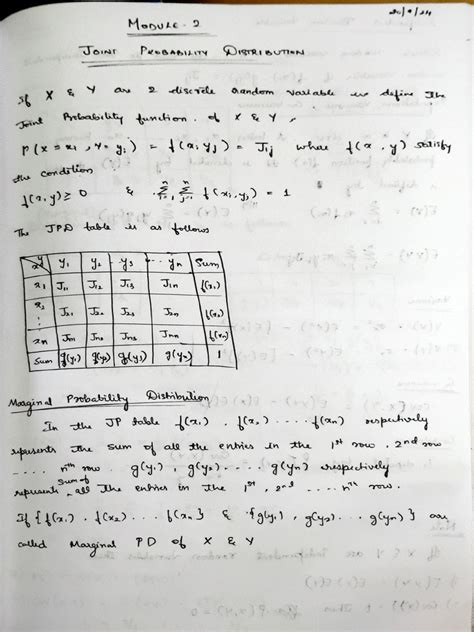 20/9/24
MODULE-2
JOINT PROBABILITY DISTRIBUTION
If X & Y are 2 discrete random variable we define the
Joint Probability function of X & Y,
P(X = xi, Y = yj) = f(xi, yj) = Jij where f(x, y) satisfy
the condition
f(x, y) ≥ 0 & Σ Σ f(xi, yj) = 1
The JPD table is as follows
x\y y1 y2 ..y3 ...yn Sum
x1 J11 J12 J13 J1n f(x1)
x2 J21 J22 J23 J2n f(x2)
xn Jm1 Jm2 Jm3 Jmn f(xn)
Sum g(y1) g(y2) g(y3) g(yn) 1
Marginal Probability Distribution
In the JP table f(x1), f(x2) .... f(xn) respectively
repusents the sum of all the entries in the 1st row, 2nd row
.... nth row. g(y1), g(y2) .... g(yn) respectively
repusents sum of all the entries in the 1st, 2nd .... nth row.
If {f(x1), f(x2) ... f(xn)} & {g(y1), g(y2) ... g(yn)} are
called Marginal PD of X & Y